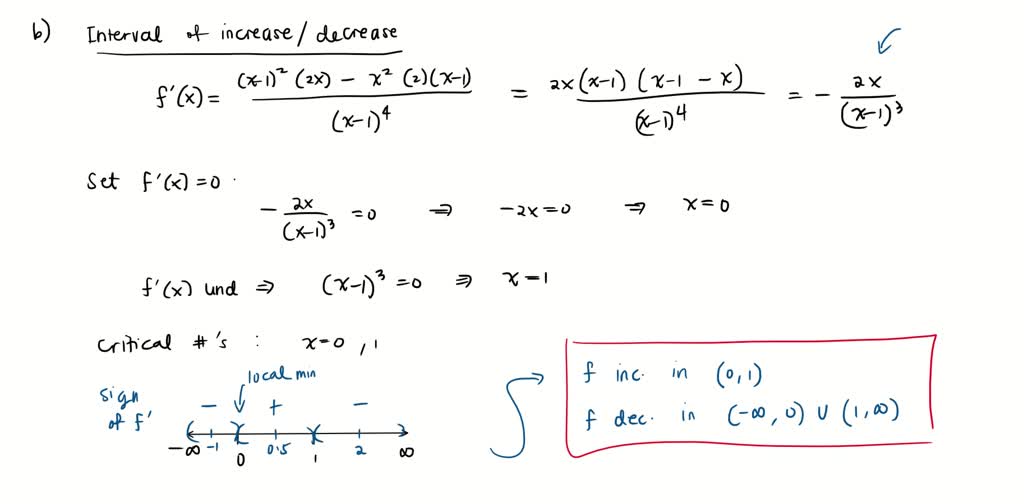 b) Interval of increase/decrease
f'(x) = ((x-1)² (2x) - x² (2)(x-1))/(x-1)⁴ = (2x(x-1) (x-1-x))/(x-1)⁴ = - 2x/(x-1)³
Set f'(x)=0.
- 2x/(x-1)³ = 0 ⇒ -2x=0 ⇒ x=0
f'(x) und ⇒ (x-1)³ = 0 ⇒ x=1
Critical #'s : x=0, 1
local min
sign of f'
- + -
-∞ -1 0 0.5 1 2 ∞
f inc. in (0,1)
f dec. in (-∞, 0) ∪ (1, ∞)